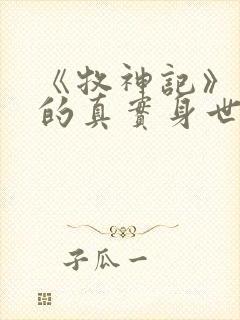 《牧神記》
的真實身世
子瓜一